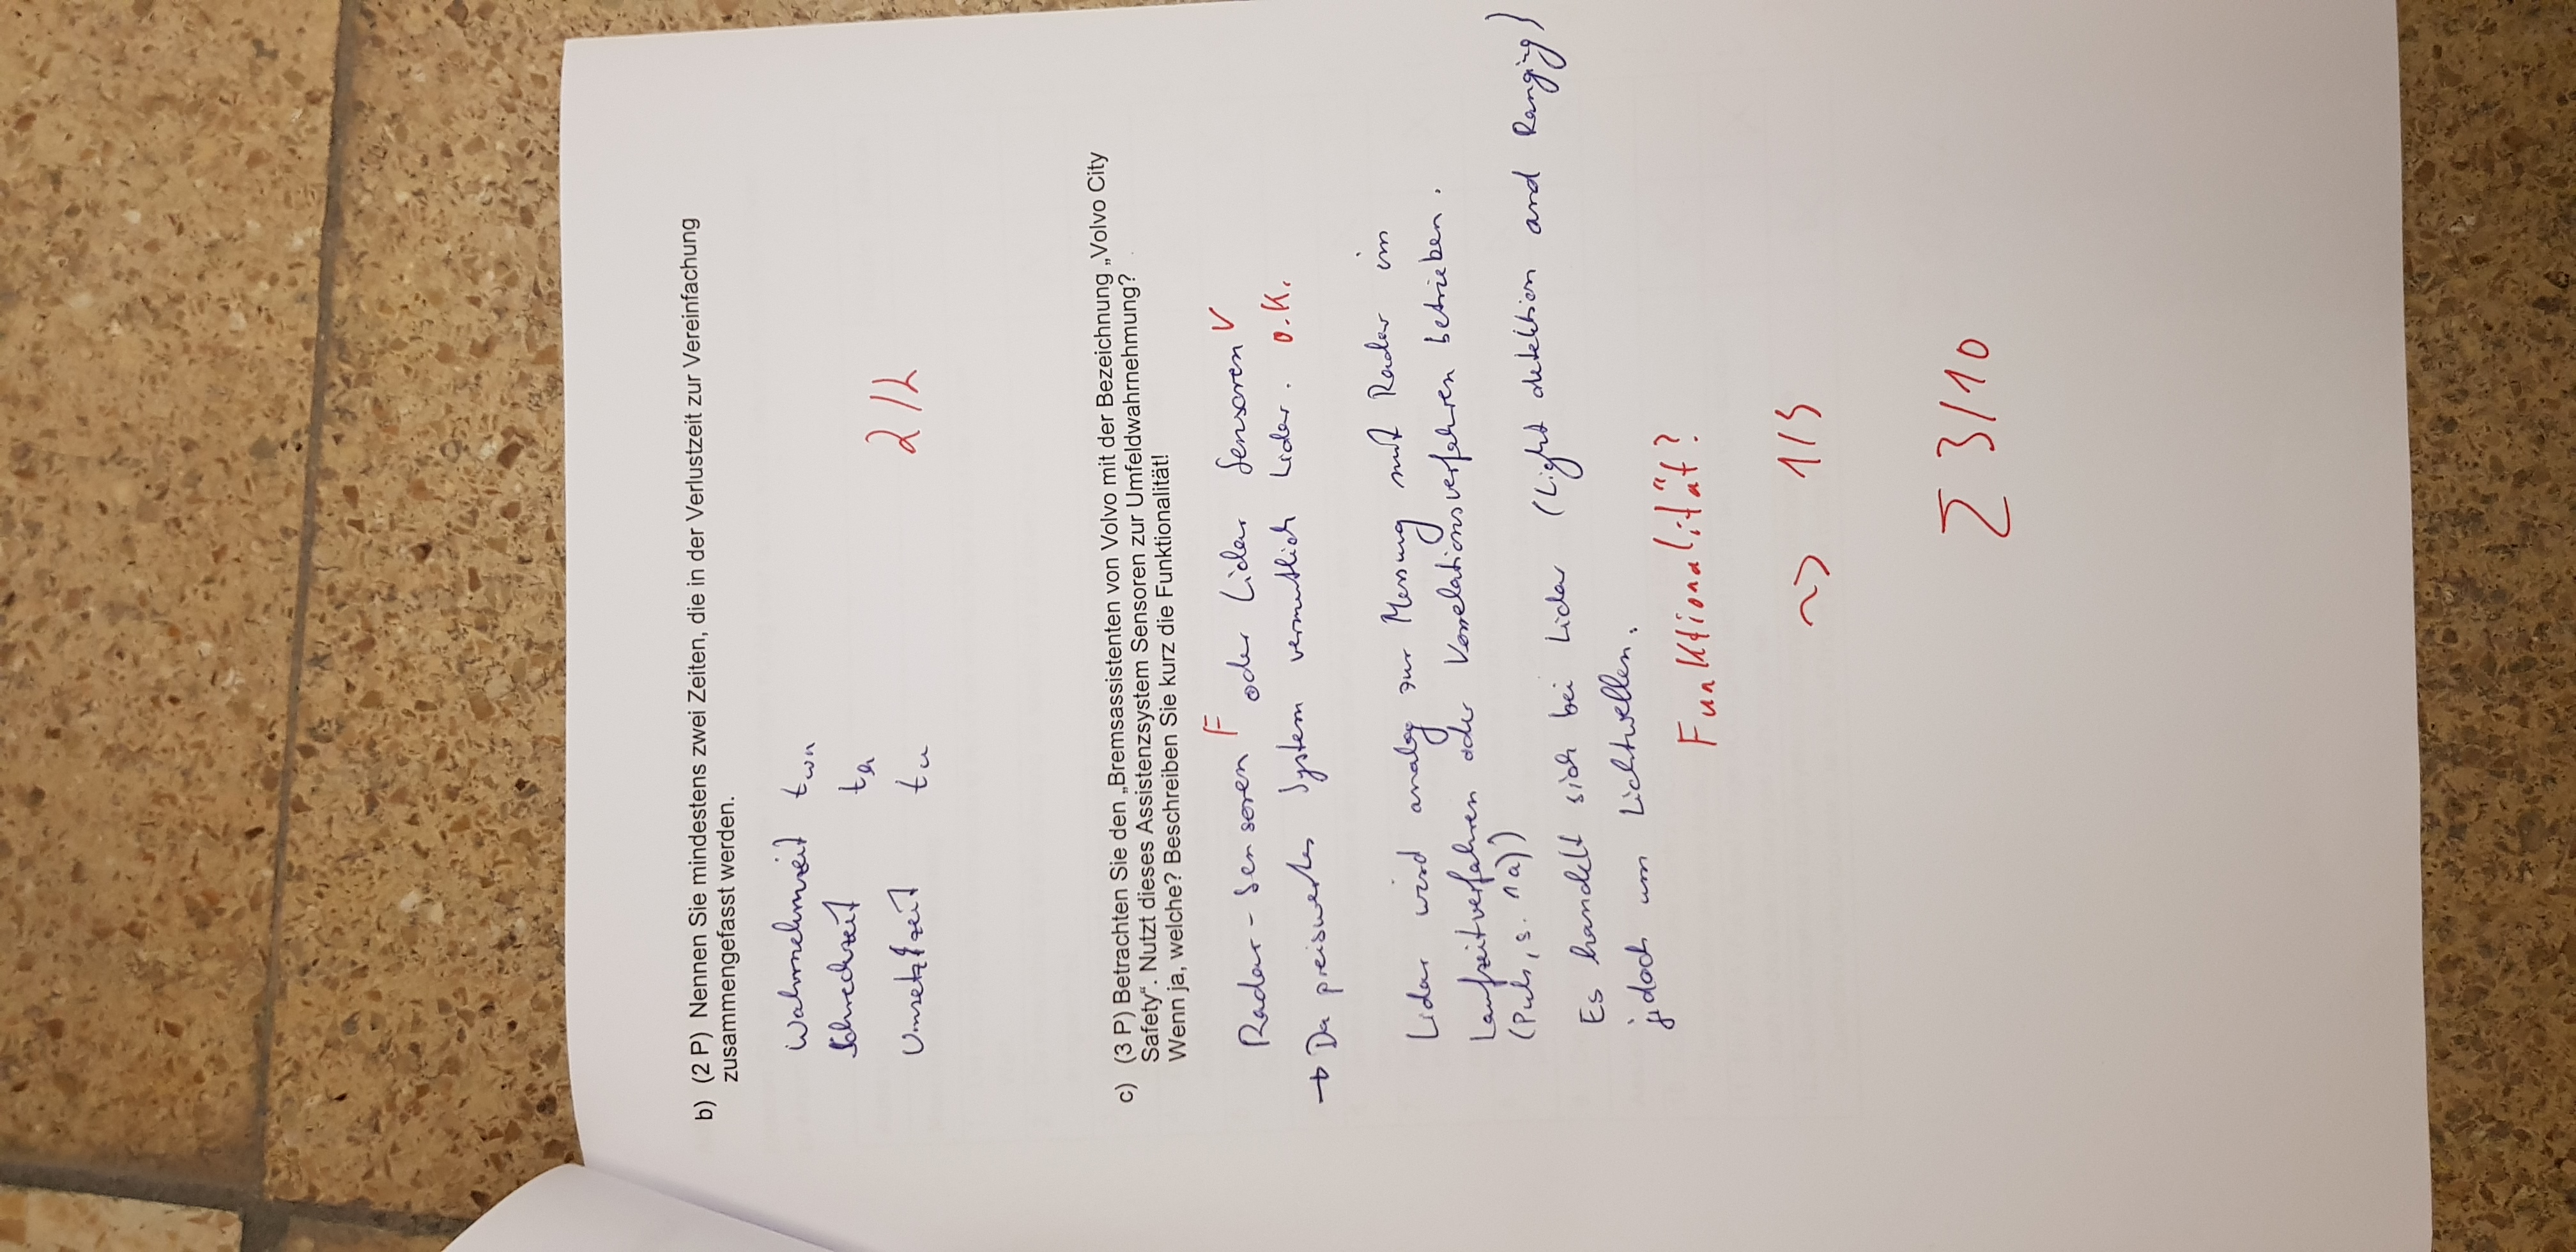 b) (2 P) Nennen Sie mindestens zwei Zeiten, die in der Verlustzeit zur Vereinfachung
zusammengefasst werden.
Wahrnehmzeit t wn
Schreckzeit t
Umsetzzeit t u
2/2
c) (3 P) Betrachten Sie den „Bremsassistenten von Volvo mit der Bezeichnung „Volvo City
Safety“. Nutzt dieses Assistenzsystem Sensoren zur Umfeldwahrnehmung?
Wenn ja, welche? Beschreiben Sie kurz die Funktionalität!
Radar-Sensoren F oder Lidar Sensoren V
→ Da preiswertes System vermutlich Lidar. o.K.
Lidar wird analog zur Messung mit Radar im
Laufzeitverfahren oder Korrelationsverfahren betrieben.
(Puls, s. 1a))
Es handelt sich bei Lidar (Light detektion and Ranging)
jedoch um Lichtwellen.
Funktionalität?
~> 1/3
Σ 3/10